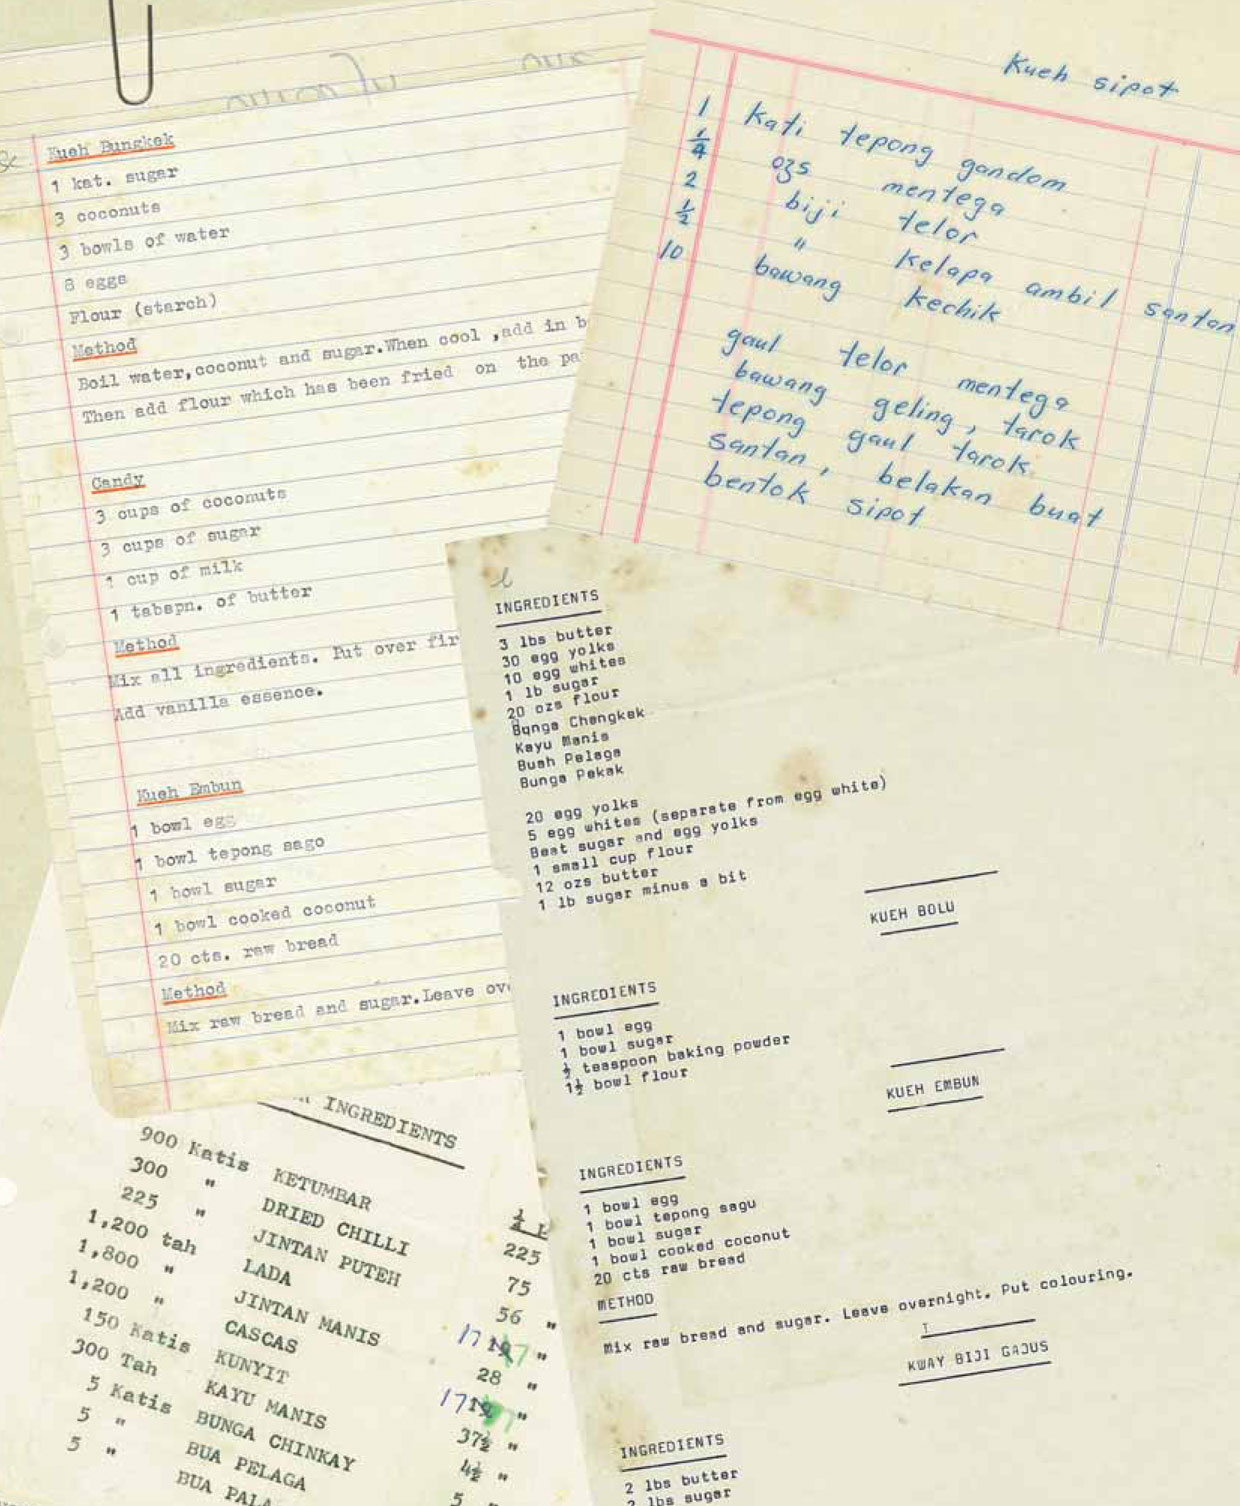 Kueh Bungkek
1 kat. sugar
3 coconuts
3 bowls of water
8 eggs
Flour (starch)
Method
Boil water,coconut and sugar.When cool ,add in
Then add flour which has been fried on the
Candy
3 cups of coconuts
3 cups of sugar
1 cup of milk
1 tabspn. of butter
Method
Mix all ingredients. Put over
Add vanilla essence.
Kueh Embun
1 bowl egg
1 bowl tepong sago
1 bowl sugar
1 bowl cooked coconut
20 cts. raw bread
Method
Mix raw bread and sugar.Leave
Kueh sipot
1 kati tepong gandom
1/4 ozs mentega
2 biji telor
1/2 " kelapa ambil santan
10 bawang kechik
gaul telor mentega
bawang geling, tarok
tepong gaul tarok
santan, belakan buat
bentok sipot
INGREDIENTS
3 lbs butter
30 egg yolks
10 egg whites
1 lb sugar
20 ozs flour
Bunga Chengkek
Kayu Manis
Buah Pelaga
Bunga Pekak
20 egg yolks
5 egg whites (separate from egg white)
Beat sugar and egg yolks
1 small cup flour
12 ozs butter
1 lb sugar minus a bit
KUEH BOLU
INGREDIENTS
1 bowl egg
1 bowl sugar
½ teaspoon baking powder
1½ bowl flour
KUEH EMBUN
INGREDIENTS
1 bowl egg
1 bowl tepong sagu
1 bowl sugar
1 bowl cooked coconut
20 cts raw bread
METHOD
Mix raw bread and sugar. Leave overnight. Put colouring.
KWAY BIJI GAJUS
INGREDIENTS
2 lbs butter
2 lbs sugar
INGREDIENTS
900 Katis KETUMBAR
300 " DRIED CHILLI 225
225 " JINTAN PUTEH 75
1,200 tah LADA 56 "
1,800 " JINTAN MANIS "
1,200 " CASCAS 28 "
150 Katis KUNYIT "
300 Tah KAYU MANIS 37½ "
5 Katis BUNGA CHINKAY 4½ "
5 " BUA PELAGA 5 "
5 " BUA